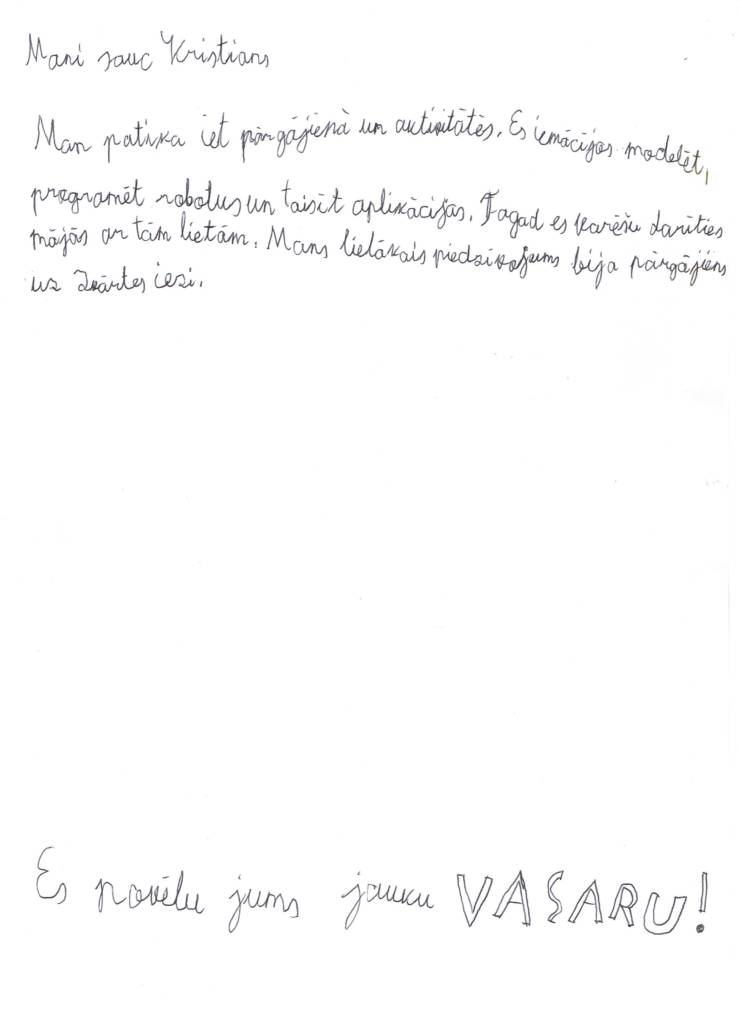 Mani sauc Kristians
Man patika iet pārgājienā un aktivitātēs. Es iemācijos modelēt,
programēt robotus un taisīt aplikācijas. Tagad es varēšu darīties
mājās ar tām lietām. Mans lielākais piedzivojums bija pārgājiens
uz Zvārtes iezi.
Es novēlu jums jauku VASARU!